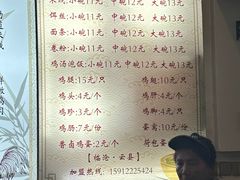 米线:小碗11元 中碗12元 大碗13元
饵丝:小碗11元 中碗12元 大碗13元
面条:小碗11元 中碗12元 大碗13元
卷粉:小碗11元 中碗12元 大碗13元
鸡汤泡饭:小碗11元 中碗12元 大碗13元
鸡腿:15元/只 鸡翅:10元/只
鸡头:4元/个 鸡肝:4元/个
鸡脚:3元/只 鸡胗:4元/个
鸡肠:7元/份 蛋索:10元/份
普通鸡蛋:2元/个 荷包蛋
【临沧·云县】
加盟热线:15912225424